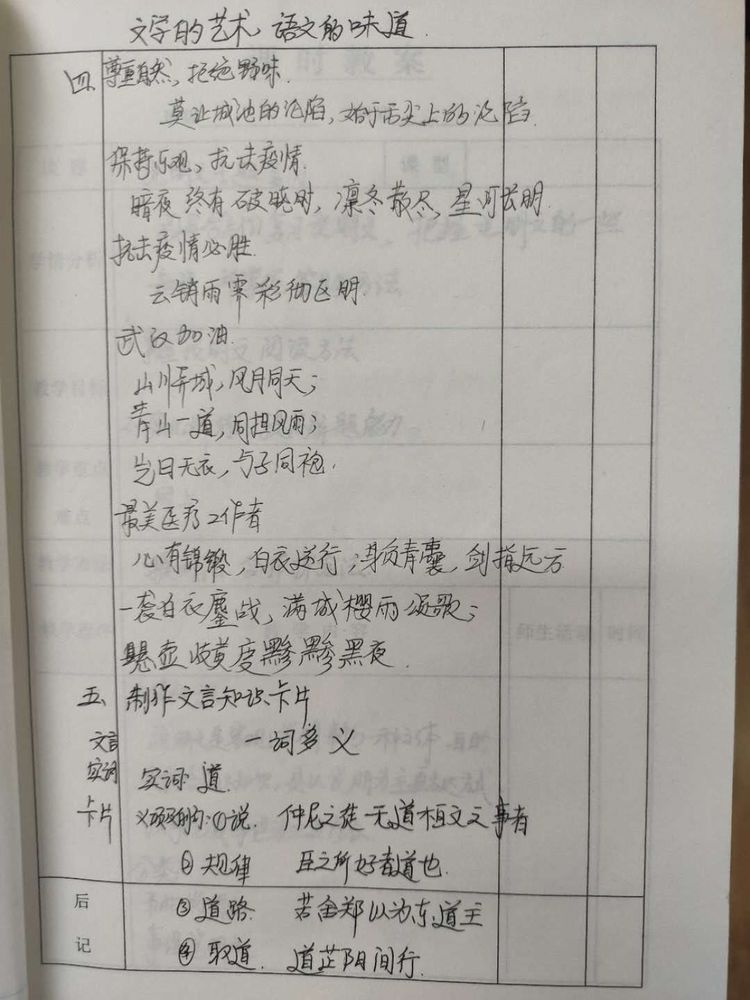 文学的艺术 语文的味道
四、尊重自然，拒绝野味
莫让城池的沦陷，始于舌尖上的沦陷.
保持乐观，抗击疫情.
暗夜终有破晓时，凛冬散尽，星河长明.
抗击疫情必胜.
云销雨霁彩彻区明.
武汉加油.
山川异域，风月同天；
青山一道，同担风雨；
岂曰无衣，与子同袍.
最美医疗工作者
心有锦缎，白衣逆行；身负青囊，剑指远方
一袭白衣鏖战，满城樱雨颂歌；
悬壶 度黪黪黑夜.
五、制作文言知识卡片
文言实词卡片
一词多义
实词：道.
义项及例句：①说. 仲尼之徒无道桓文之事者
②规律 臣之所好者道也.
后记
③道路. 若舍郑以为东道主
④取道. 道芷阳间行.
师生活动 时间